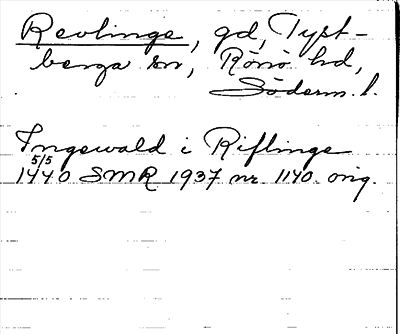 Revlinge, gd, Tyst-
berga sn, Rönö hd,
Söderm. l.
Ingewald i Riflinge
5/5
1440 SMR 1937 nr 1140. orig.